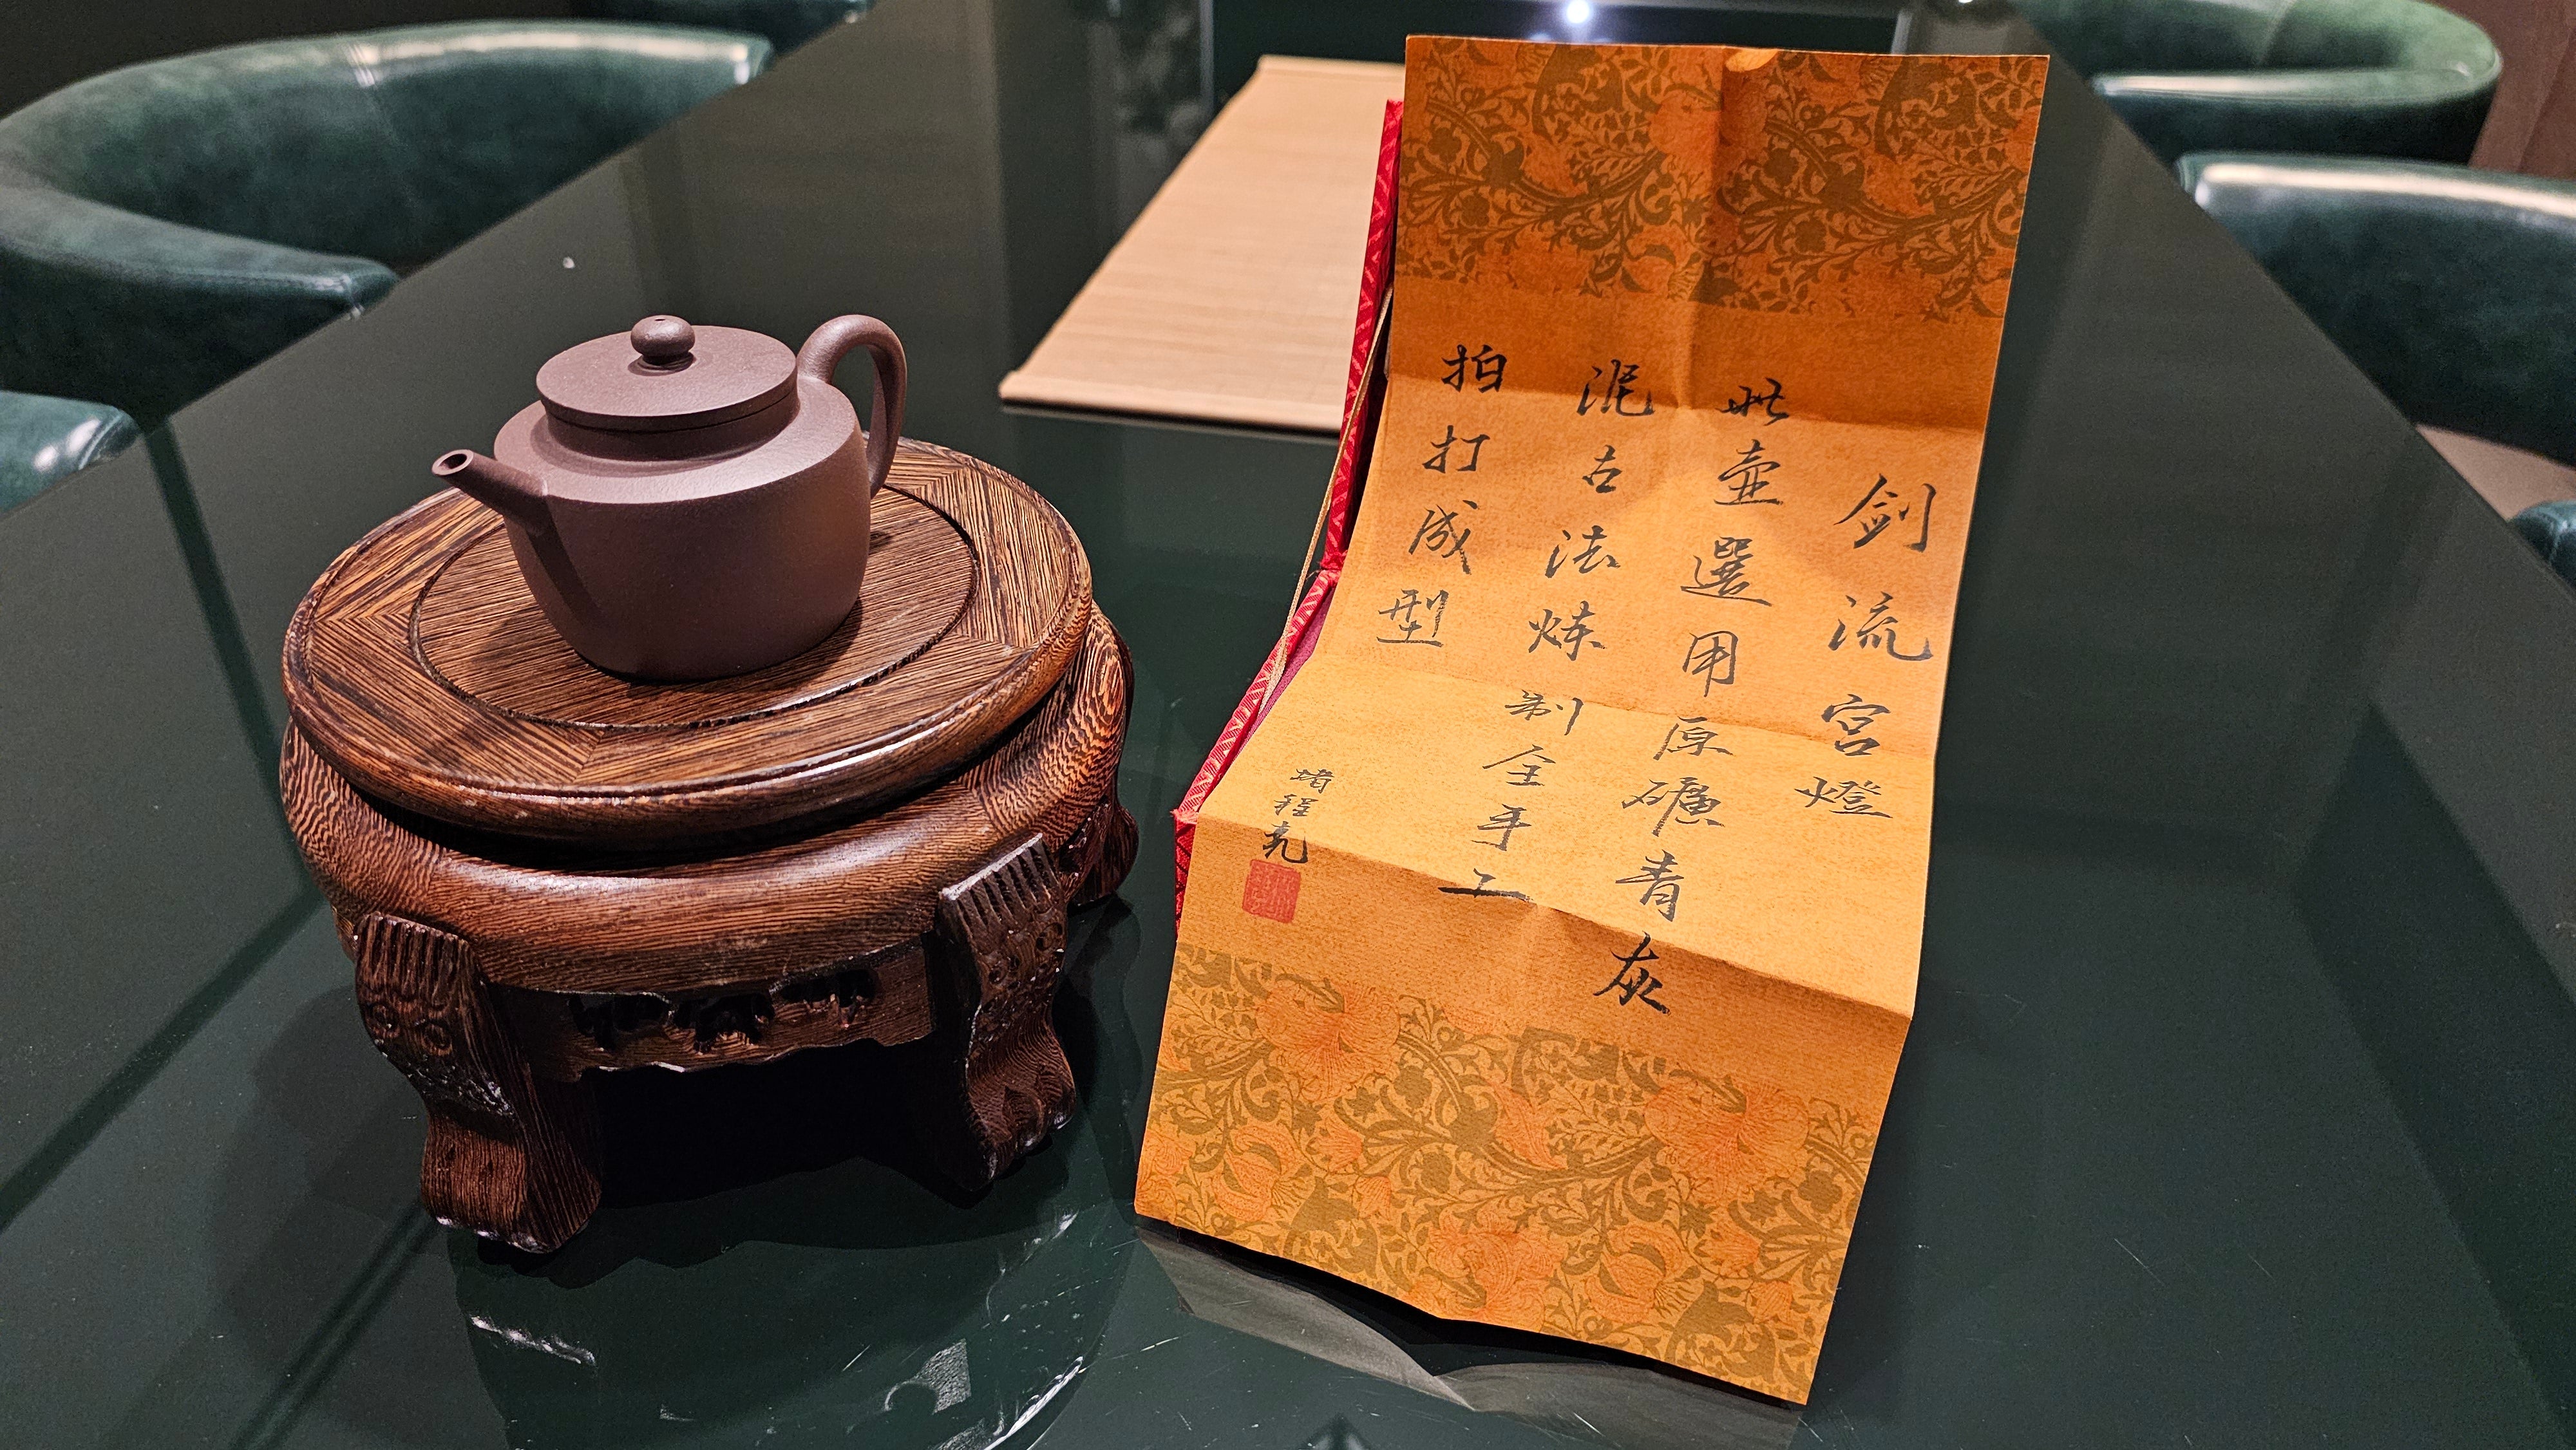 剑流宫燈
此壶選用原礦青灰
泥古法炼制全手工
拍打成型
堵程尭